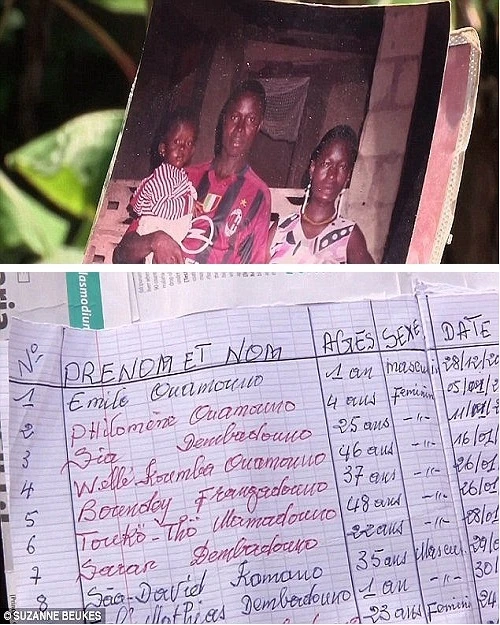 lasmodium
Nº PRENOM ET NOM AGES SEXE DATE
1 Emile Ouamouno 1 an masculin 28/12/20
2 Philomène Ouamouno 4 ans Feminin 05/01/
3 Sia Dembadouno 25 ans -"- 11/01/
4 Wellé Koumba Ouamouno 46 ans -"- 16/01/
5 Boendoy Frangadouno 37 ans -"- 26/01
6 Toukö-Thö Mamadouno 48 ans -"- 26/01
7 Saran Dembadouno -"- 28/01
8 Sâa-David Komano 35 ans Mascu
Mathias Dembadouno 1 an -"- 30/
23 ans Feminin 24
© SUZANNE BEUKES